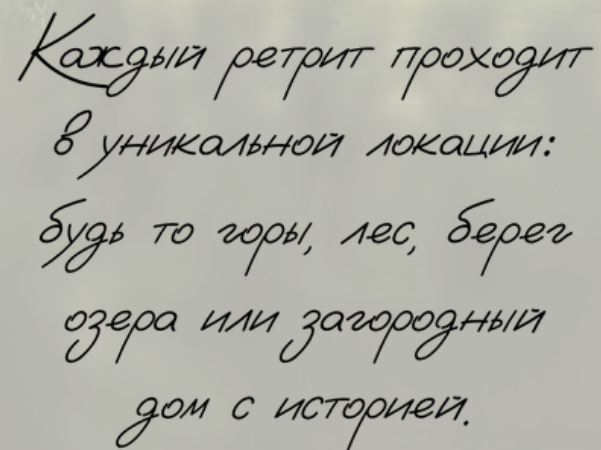 Каждый ретрит проходит
в уникальной локации:
будь то горы, лес, берег
озера или загородный
дом с историей.